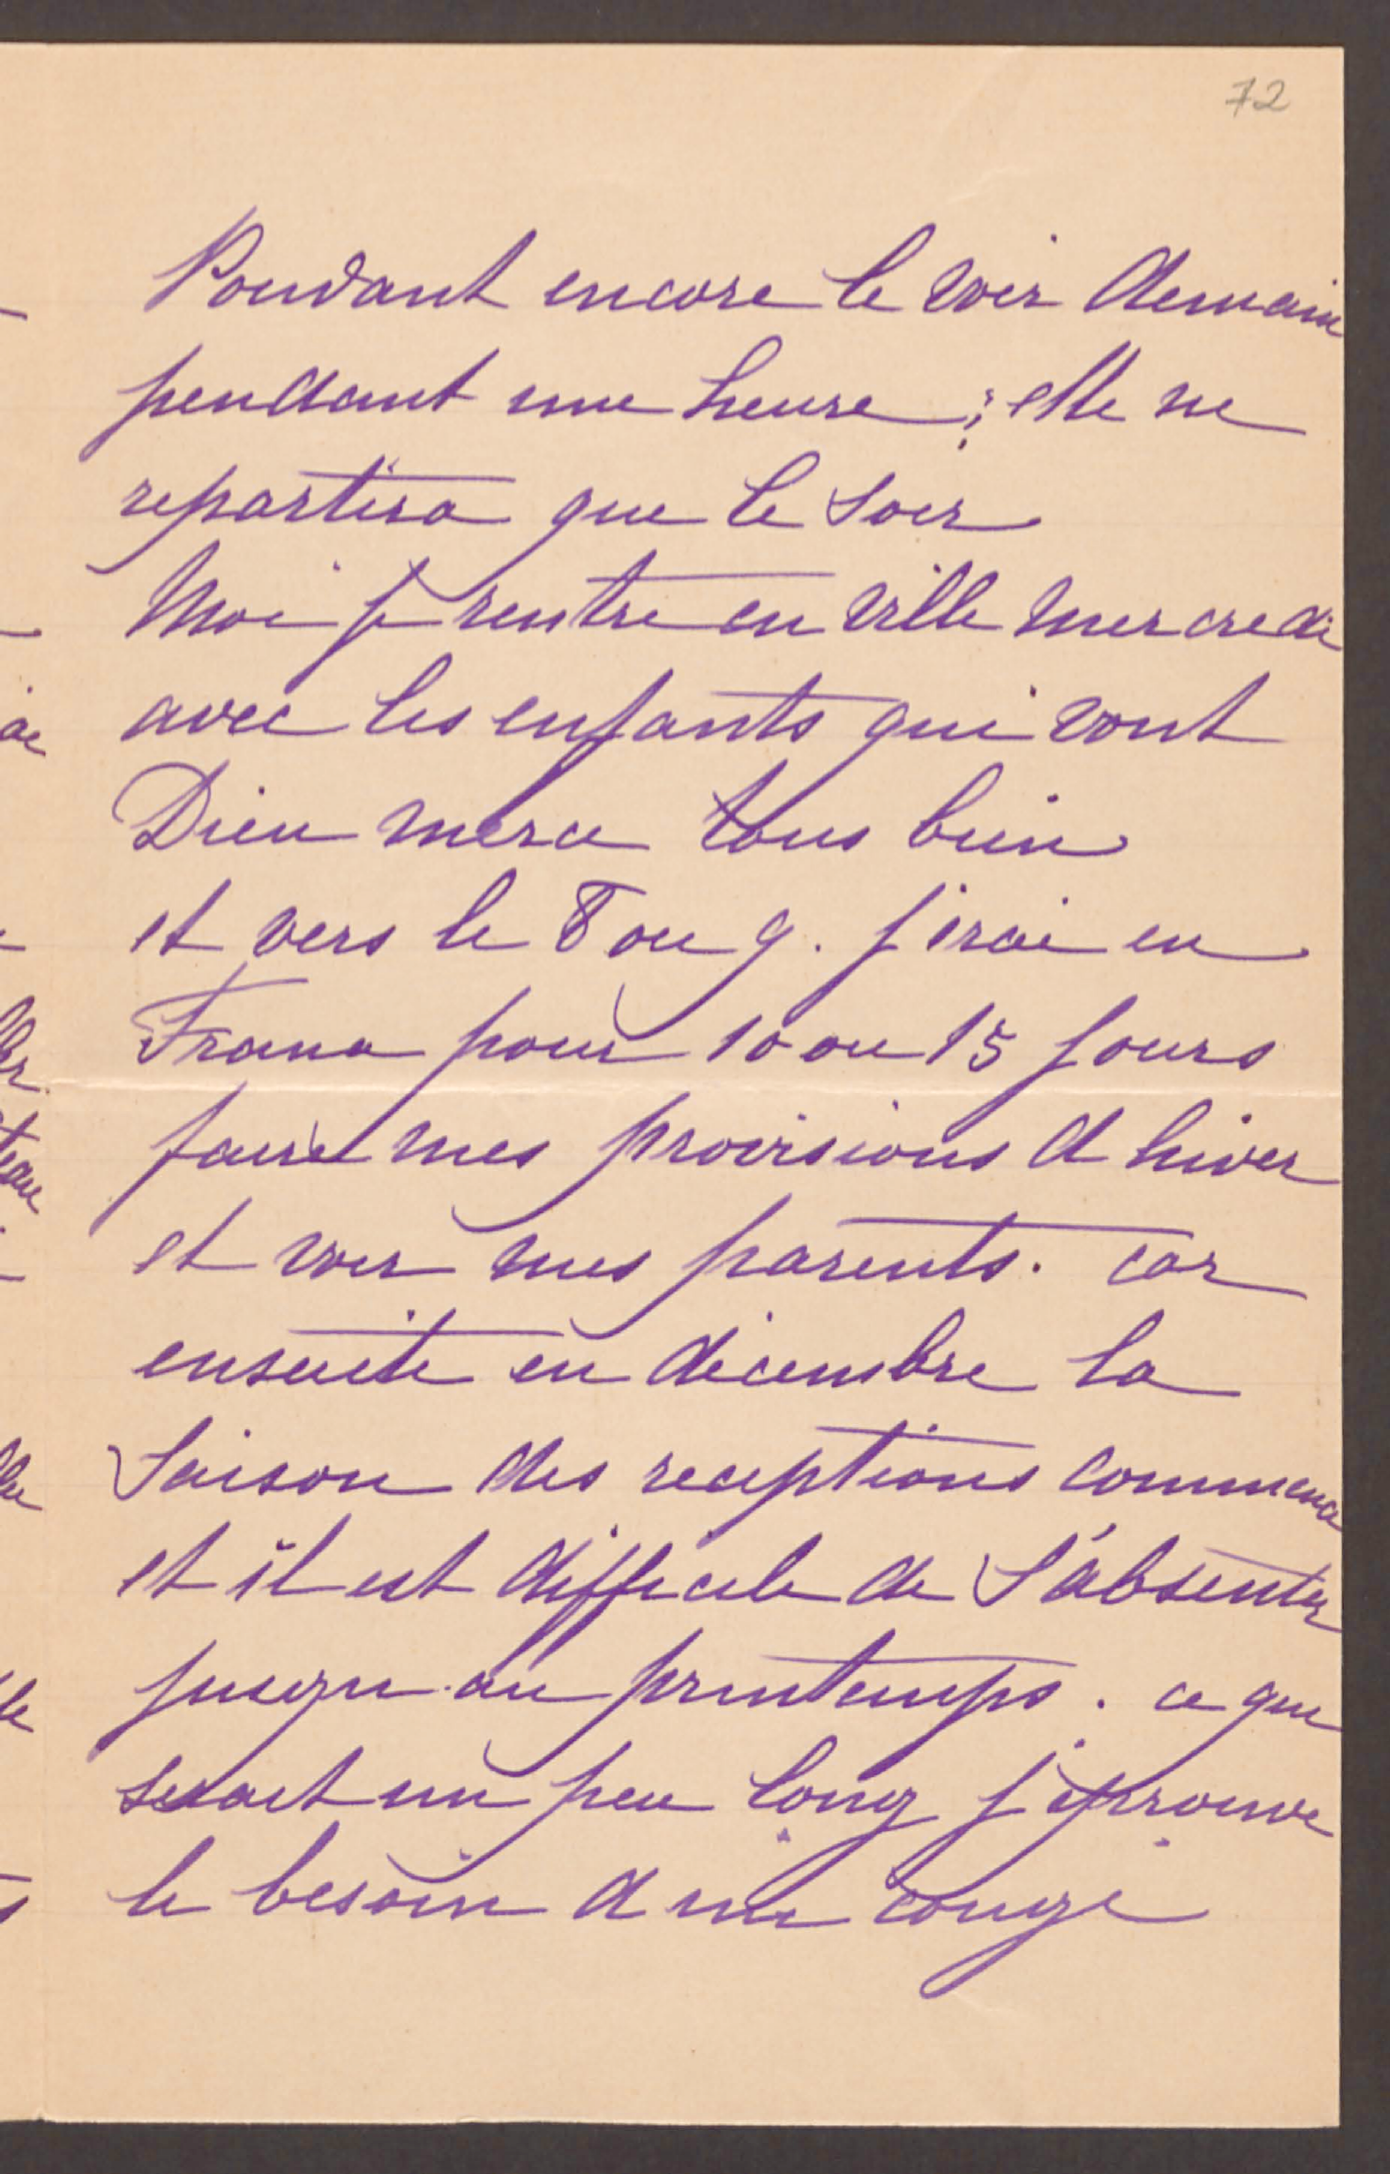 72
Pouvant encore le voir demain
pendant une heure ; elle ne
repartira que le soir
Moi je rentre en ville mercredi
avec les enfants qui vont
Dieu merci tous bien
et vers le 8 ou 9. j irai en
France pour 10 ou 15 jours
faire mes provisions d hiver
et voir mes parents. car
ensuite en décembre la
Saison des receptions commence
et il est difficile de S'absenter
jusqu au printemps. ce qui
serait un peu long j éprouve
le besoin d un congé